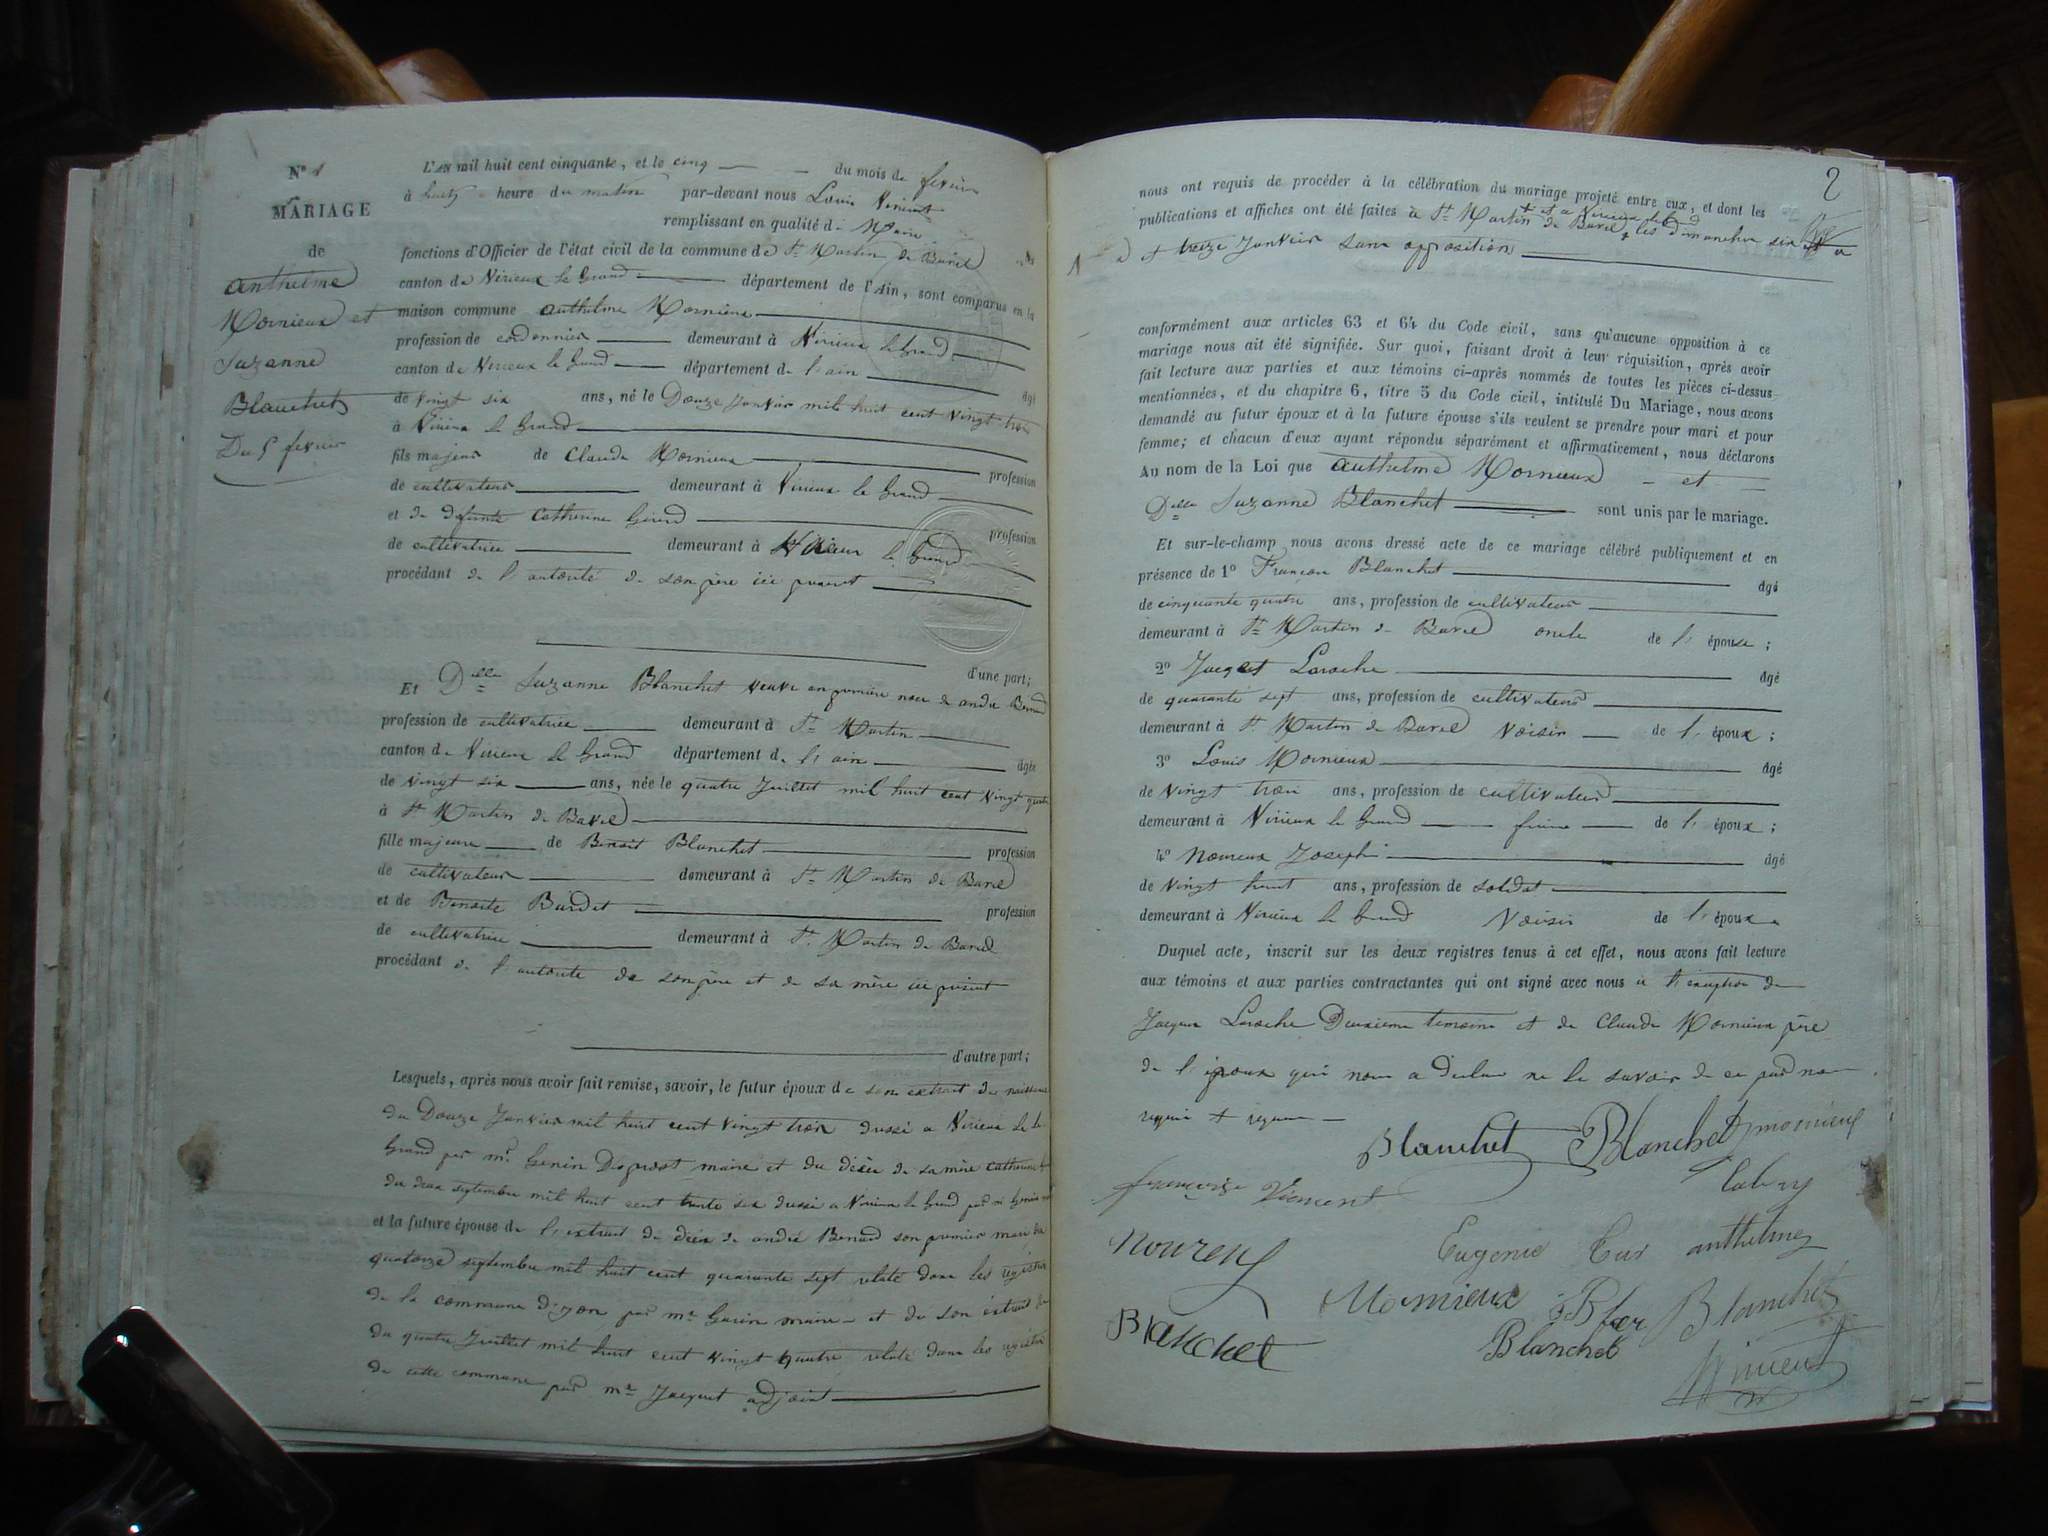 N° 1
MARIAGE
de
anthelme
Mornieux et
Suzanne
Blanchet
Du 5 fevrier
L'AN mil huit cent cinquante, et le cinq du mois de fevrier
à huit heure du matin par-devant nous Louis Vincent
remplissant en qualité de Maire
fonctions d'Officier de l'état civil de la commune de St Martin de Bavel
canton de Virieux le Grand département de l'Ain, sont comparus en la
maison commune anthelme Mornieux
profession de cordonnier demeurant à Virieux le Grand
canton de Virieux le Grand département de l'ain
de vingt six ans, né le Douze Janvier mil huit cent vingt trois âgé
à Virieu le Grand
fils majeur de Claude Mornieux profession
de cultivateur demeurant à Virieux le Grand
et de défunte Catherine Girerd profession
de cultivatrice demeurant à Virieux le Grand
procédant de l'autorité de son père ici present
d'une part;
Et Delle Suzanne Blanchet veuve en première noce de andré Bernard
profession de cultivatrice demeurant à St Martin
canton de Virieu le Grand département de l'ain âgée
de vingt six ans, née le quatre Juillet mil huit cent vingt quatre
à St Martin de Bavel
fille majeure de Benoit Blanchet profession
de cultivateur demeurant à St Martin de Bavel
et de Benoite Burdet profession
de cultivatrice demeurant à St Martin de Bavel
procédant de l'autorité de son père et de sa mère ici présent
d'autre part;
Lesquels, après nous avoir fait remise, savoir, le futur époux de son extrait de naissance
du Douze Janvier mil huit cent vingt trois à Virieu le
Grand par mr Genin maire et du décès de sa mère catherine
du deux septembre mil huit cent trente six a Virieu le Grand par
et la future épouse de l'extrait de décès de andré Bernard son premier mari du
quatorze septembre mil huit cent quarante sept relaté dans les registres
de la commune par mr maire et de son extrait de
du quatre Juillet mil huit cent vingt quatre relaté dans les registres
de cette commune par mr Jacquet adjoint
2
nous ont requis de procéder à la célébration du mariage projeté entre eux, et dont les
publications et affiches ont été faites à St Martin de Bavel les dimanches six
+ et a Virieux le Grand
et treize Janvier sans opposition
conformément aux articles 63 et 64 du Code civil, sans qu'aucune opposition à ce
mariage nous ait été signifiée. Sur quoi, faisant droit à leur réquisition, après avoir
fait lecture aux parties et aux témoins ci-après nommés de toutes les pièces ci-dessus
mentionnées, et du chapitre 6, titre 5 du Code civil, intitulé Du Mariage, nous avons
demandé au futur époux et à la future épouse s'ils veulent se prendre pour mari et pour
femme; et chacun d'eux ayant répondu séparément et affirmativement, nous déclarons
Au nom de la Loi que anthelme Mornieux et
Delle Suzanne Blanchet sont unis par le mariage.
Et sur-le-champ nous avons dressé acte de ce mariage célébré publiquement et en
présence de 1° Francois Blanchet âgé
de cinquante quatre ans, profession de cultivateur
demeurant à St Martin de Bavel oncle de l' épouse ;
2° Jacques Laroche âgé
de quarante sept ans, profession de cultivateur
demeurant à St Martin de Bavel voisin de l' époux ;
3° Louis Mornieux âgé
de vingt trois ans, profession de cultivateur
demeurant à Virieux le Grand frère de l' époux ;
4° Joseph âgé
de vingt huit ans, profession de soldat
demeurant à Virieux le Grand voisin de l' époux
Duquel acte, inscrit sur les deux registres tenus à cet effet, nous avons fait lecture
aux témoins et aux parties contractantes qui ont signé avec nous à l'exception de
Jacques Laroche Deuxième temoins et de Claude Mornieux père
de l'époux qui nous a déclaré ne le savoir de ce par nous
requis + requis
Blanchet Blanchet mornieux
françoise Vincent
Eugenie anthelme
Mornieux Blanchet
Blanchet Blanchet
Vincent